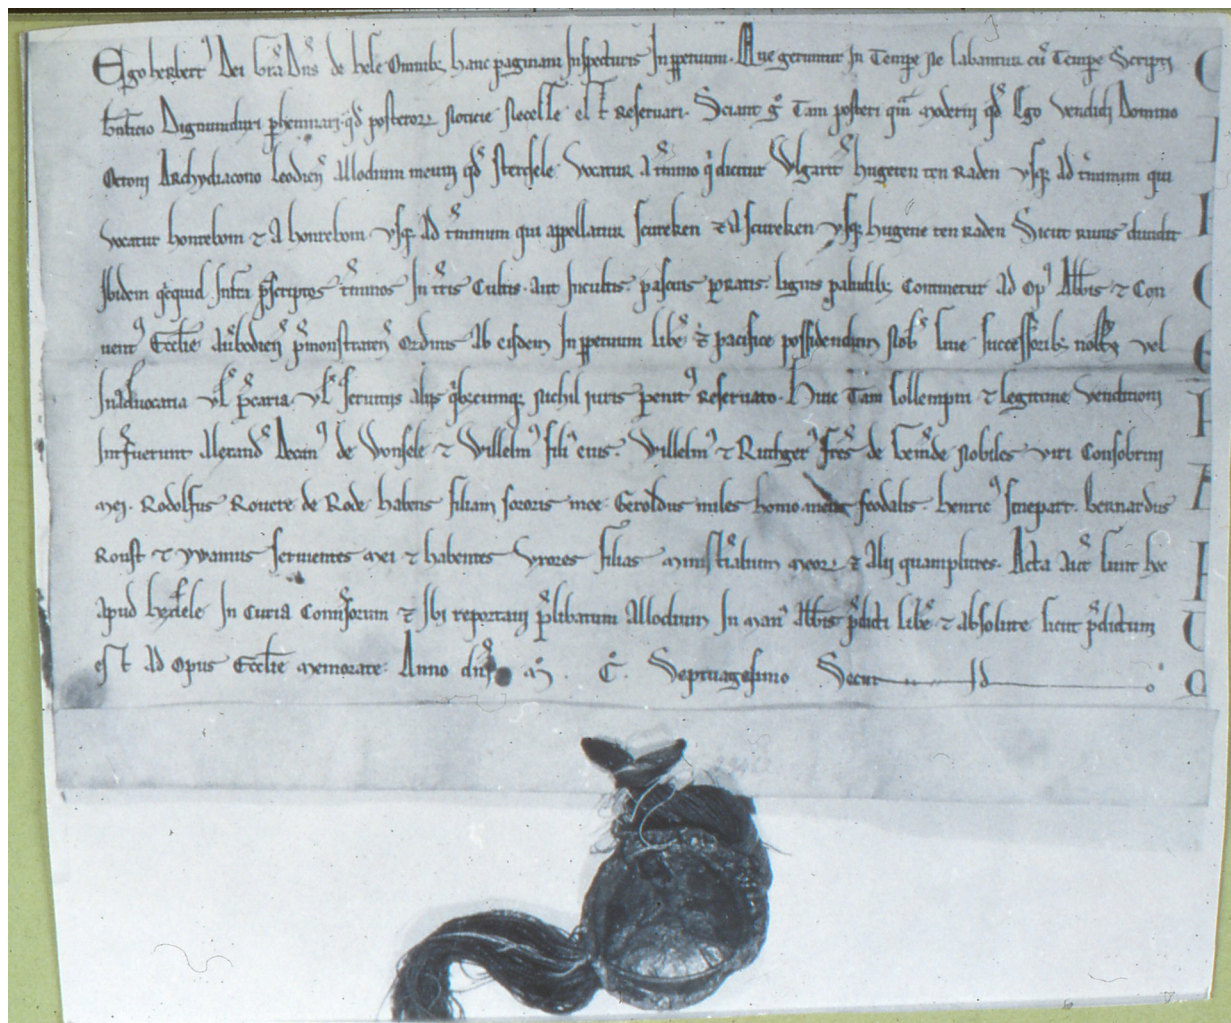 Ego herbert' Dei Gra Dns de hese Omnib; hanc paginam Inspecturis In ppetuum. Que geruntur In Tempe ne labantur cu Tempe Scripti
bnficio Dignum duxi phennari qd posteror noticie necesse est Reseruari. Sciant g Tam posteri qm moderni qd Ego vendidi Domino
Ottoni Archydiacono leodien Allodium meum qd sterksele vocatur a tmino q dicitur vlgarit hugeten ten Raden vsq; ad tminum qui
vocatur hontebom et A hontebom vsq; Ad tminum qui appellatur scureken et A scureken vsq; hugene ten Raden Sicut riuus diuidit
Ibidem qcquid Infra pscriptos tminos In tris Cultis aut Incultis pascuis pratis lignis paludib; continetur ad op' Abbis et Con
uent' Ecclie Auerbodien pmonstraten Ordinis Ab eisdem In ppetuum libe et pacifice possidendum nob siue successorib; nostris vel
In Aduocatia vl pcaria vl seruitiis aliis qbuscumq; nichil iuris penit' Reseruato. Huic Tam sollempni et legitime venditioni
Intfuerunt Alexand' de vonsele et Willelm' fili' eius. Willelm' et Rutger' fres de nobiles viri Consobrini
mei. Rodolfus Rouere de Rode habens filiam sororis mee. Geroldus miles homo meus feodalis. henric' scnepart. bernardus
Roust et ywanus seruientes mei et habentes vxores filias ministialium meor et Alij quamplures. Acta aut sunt hec
apud In curia et Ibi reportaui plibatum Allodium In man' Abbis pdicti libe et absolute sicut pdictum
est ad opus Ecclie memorate. Anno dni M. C. Septuagesimo Secundo